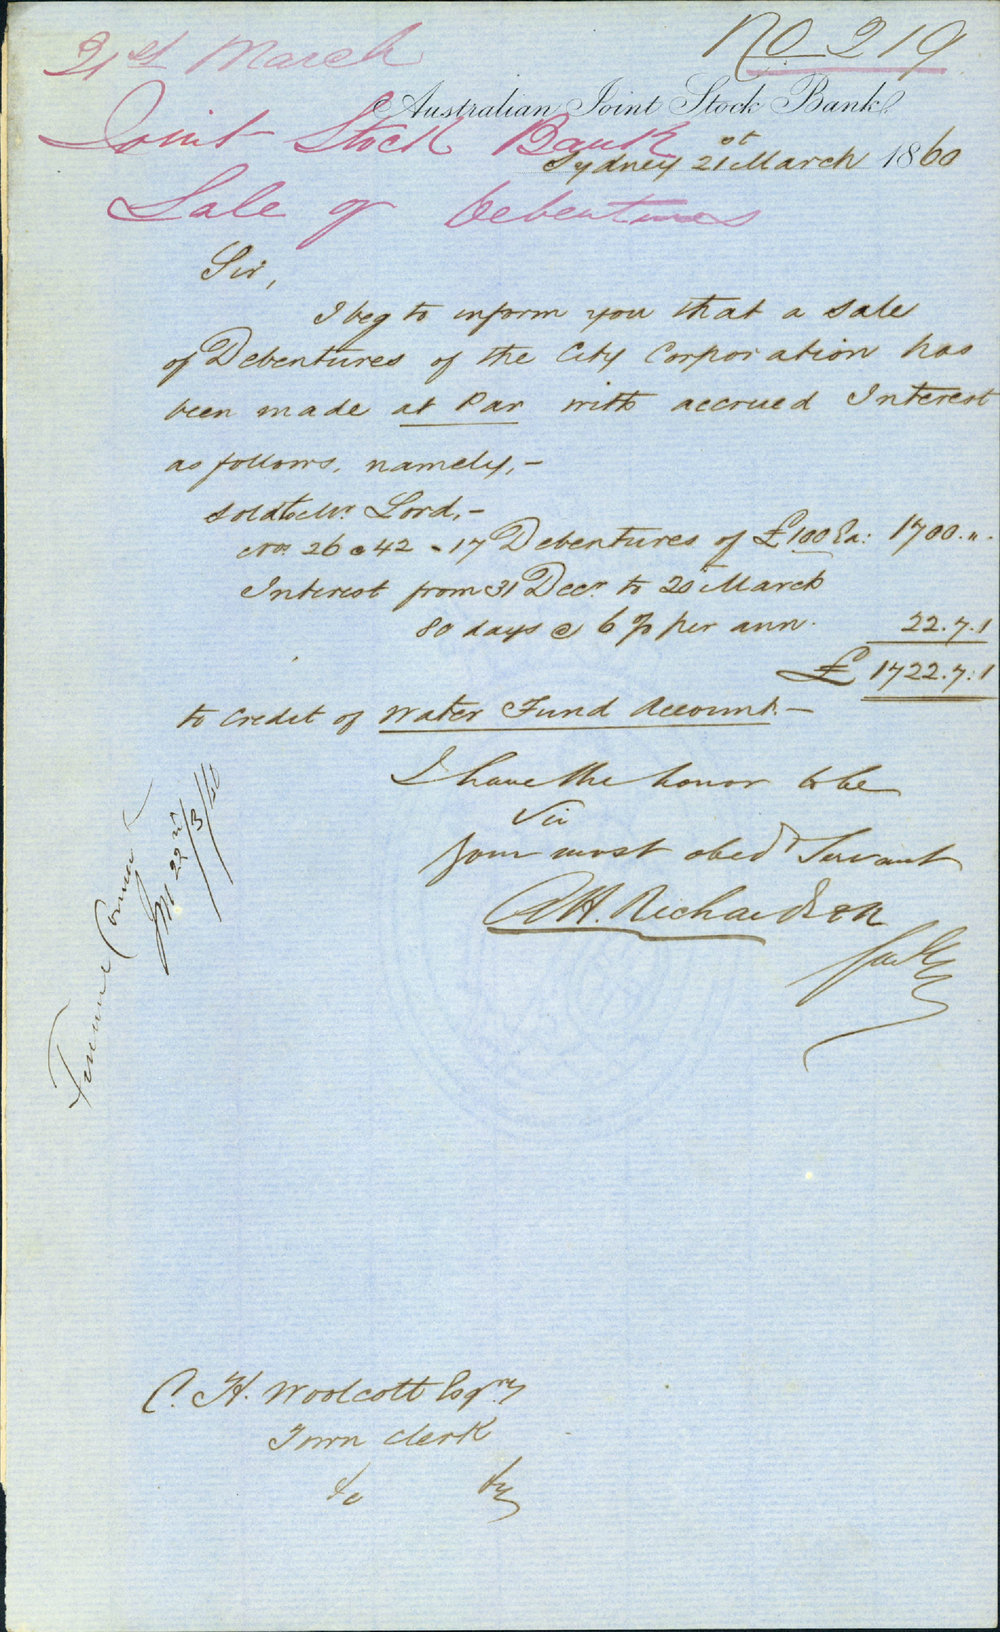 No 219
21st March
Australian Joint Stock Bank
Joint Stock Bank
Sydney 21st March 1860
Sale of Debentures
Sir,
I beg to inform you that a sale
of Debentures of the City Corporation has
been made at Par with accrued Interest
as follows, namely,-
Sold to Mr Lord,-
Nos 26 @ 42 - 17 Debentures of £100 Ea: 1700.„.
Interest from 31 Decr. to 20 March
80 days @ 6 % per ann. 22.7.1
£ 1722.7.1
to Credit of Water Fund Account.-
I have the honor to be
Sir
Your most obedt Servant
A H. Richardson
Finance Comee
22nd/3/60
C. H. Woolcott Esqry
Town Clerk
&c &c